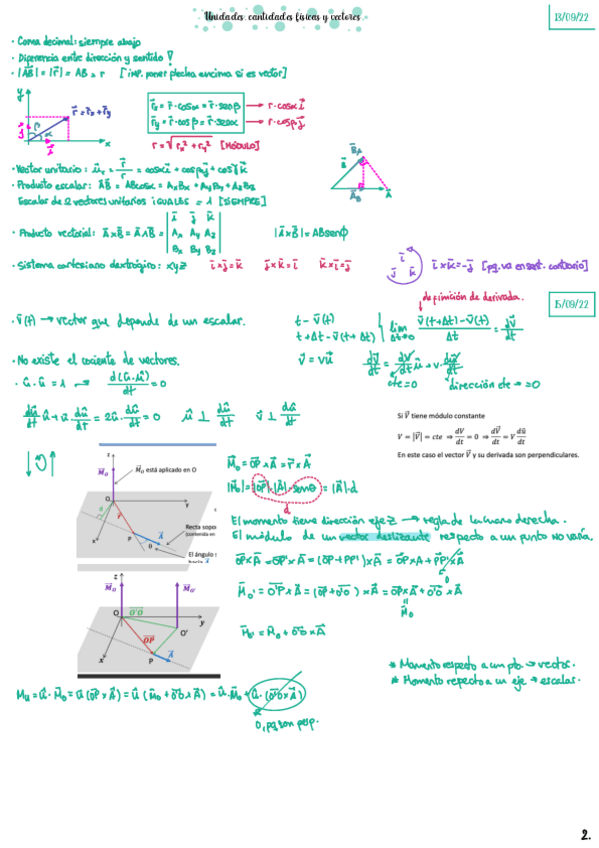 Unidades, cantidades físicas y vectores
13/09/22
· Coma decimal: siempre abajo
· Diferencia entre dirección y sentido!
· |AB⃗| = |r⃗| = AB = r [imp. poner flecha encima si es vector]
y
r⃗ = r⃗x + r⃗y
x
r⃗x = r⃗·cosα = r⃗·senβ → r·cosα i⃗
r⃗y = r⃗·cosβ = r⃗·senα → r·cosβ j⃗
r = √(rx² + ry²) [MÓDULO]
· Vector unitario: u⃗r = r⃗/r = cosα i⃗ + cosβ j⃗ + cosγ k⃗
· Producto escalar: A⃗B⃗ = ABcosα = AxBx + AyBy + AzBz
Escalar de 2 vectores unitarios IGUALES = 1 [SIEMPRE]
· Producto vectorial: A⃗xB⃗ = A⃗∧B⃗ =
i⃗ j⃗ k⃗
Ax Ay Az
Bx By Bz
|A⃗xB⃗| = ABsenϕ
· Sistema cartesiano dextrógiro: xyz i⃗x j⃗=k⃗ j⃗x k⃗=i⃗ k⃗x i⃗=j⃗ i⃗x k⃗=-j⃗ [pq. va en sent. contrario]
definición de derivada.
15/09/22
· v⃗(t) → vector que depende de un escalar.
t – v⃗(t)
t+Δt – v⃗(t+Δt)
lim Δt→0 (v⃗(t+Δt) – v⃗(t))/Δt = dv⃗/dt
· No existe el cociente de vectores.
v⃗ = V u⃗
dv⃗/dt = dV/dt u⃗ + V · du⃗/dt
cte=0 dirección cte → =0
· u⃗·u⃗ = 1 → d(u⃗·u⃗)/dt = 0
du⃗/dt u⃗ + u⃗ du⃗/dt = 2u⃗·du⃗/dt = 0 u⃗ ⊥ du⃗/dt v⃗ ⊥ du⃗/dt
Si V⃗ tiene módulo constante
V = |V⃗| = cte ⇒ dV/dt = 0 ⇒ dV⃗/dt = V dû/dt
En este caso el vector V⃗ y su derivada son perpendiculares.
z
M⃗O
M⃗O está aplicado en O
O
y
d
r⃗
x
P
A⃗
θ
Recta sopo
(contenida en
El ángulo
M⃗o = OP⃗ x A⃗ = r⃗ x A⃗
|M⃗o| = |OP⃗|·|A⃗|·senθ = |A⃗|·d
d
El momento tiene dirección eje z → regla de la mano derecha.
El módulo de un vector deslizante respecto a un punto no varía.
OP⃗xA⃗ = OP'⃗ x A⃗ = (OP⃗+PP'⃗) x A⃗ = OP⃗xA⃗ + PP'⃗xA⃗
0
z
M⃗O
M⃗O'
O
O'O⃗
O'
y
OP⃗
x
P
A⃗
M⃗o' = O'P⃗ x A⃗ = (OP⃗+O'O⃗) x A⃗ = OP⃗xA⃗ + O'O⃗ x A⃗
M⃗o
M⃗o' = M⃗o + O'O⃗ x A⃗
* Momento respecto a un pto. → vector.
* Momento respecto a un eje → escalar.
Mu = u⃗·M⃗o = u⃗(OP⃗xA⃗) = u⃗(M⃗o + O'O⃗xA⃗) = u⃗·M⃗o + u⃗·(O'O⃗xA⃗)
0, pq son perp.
2.